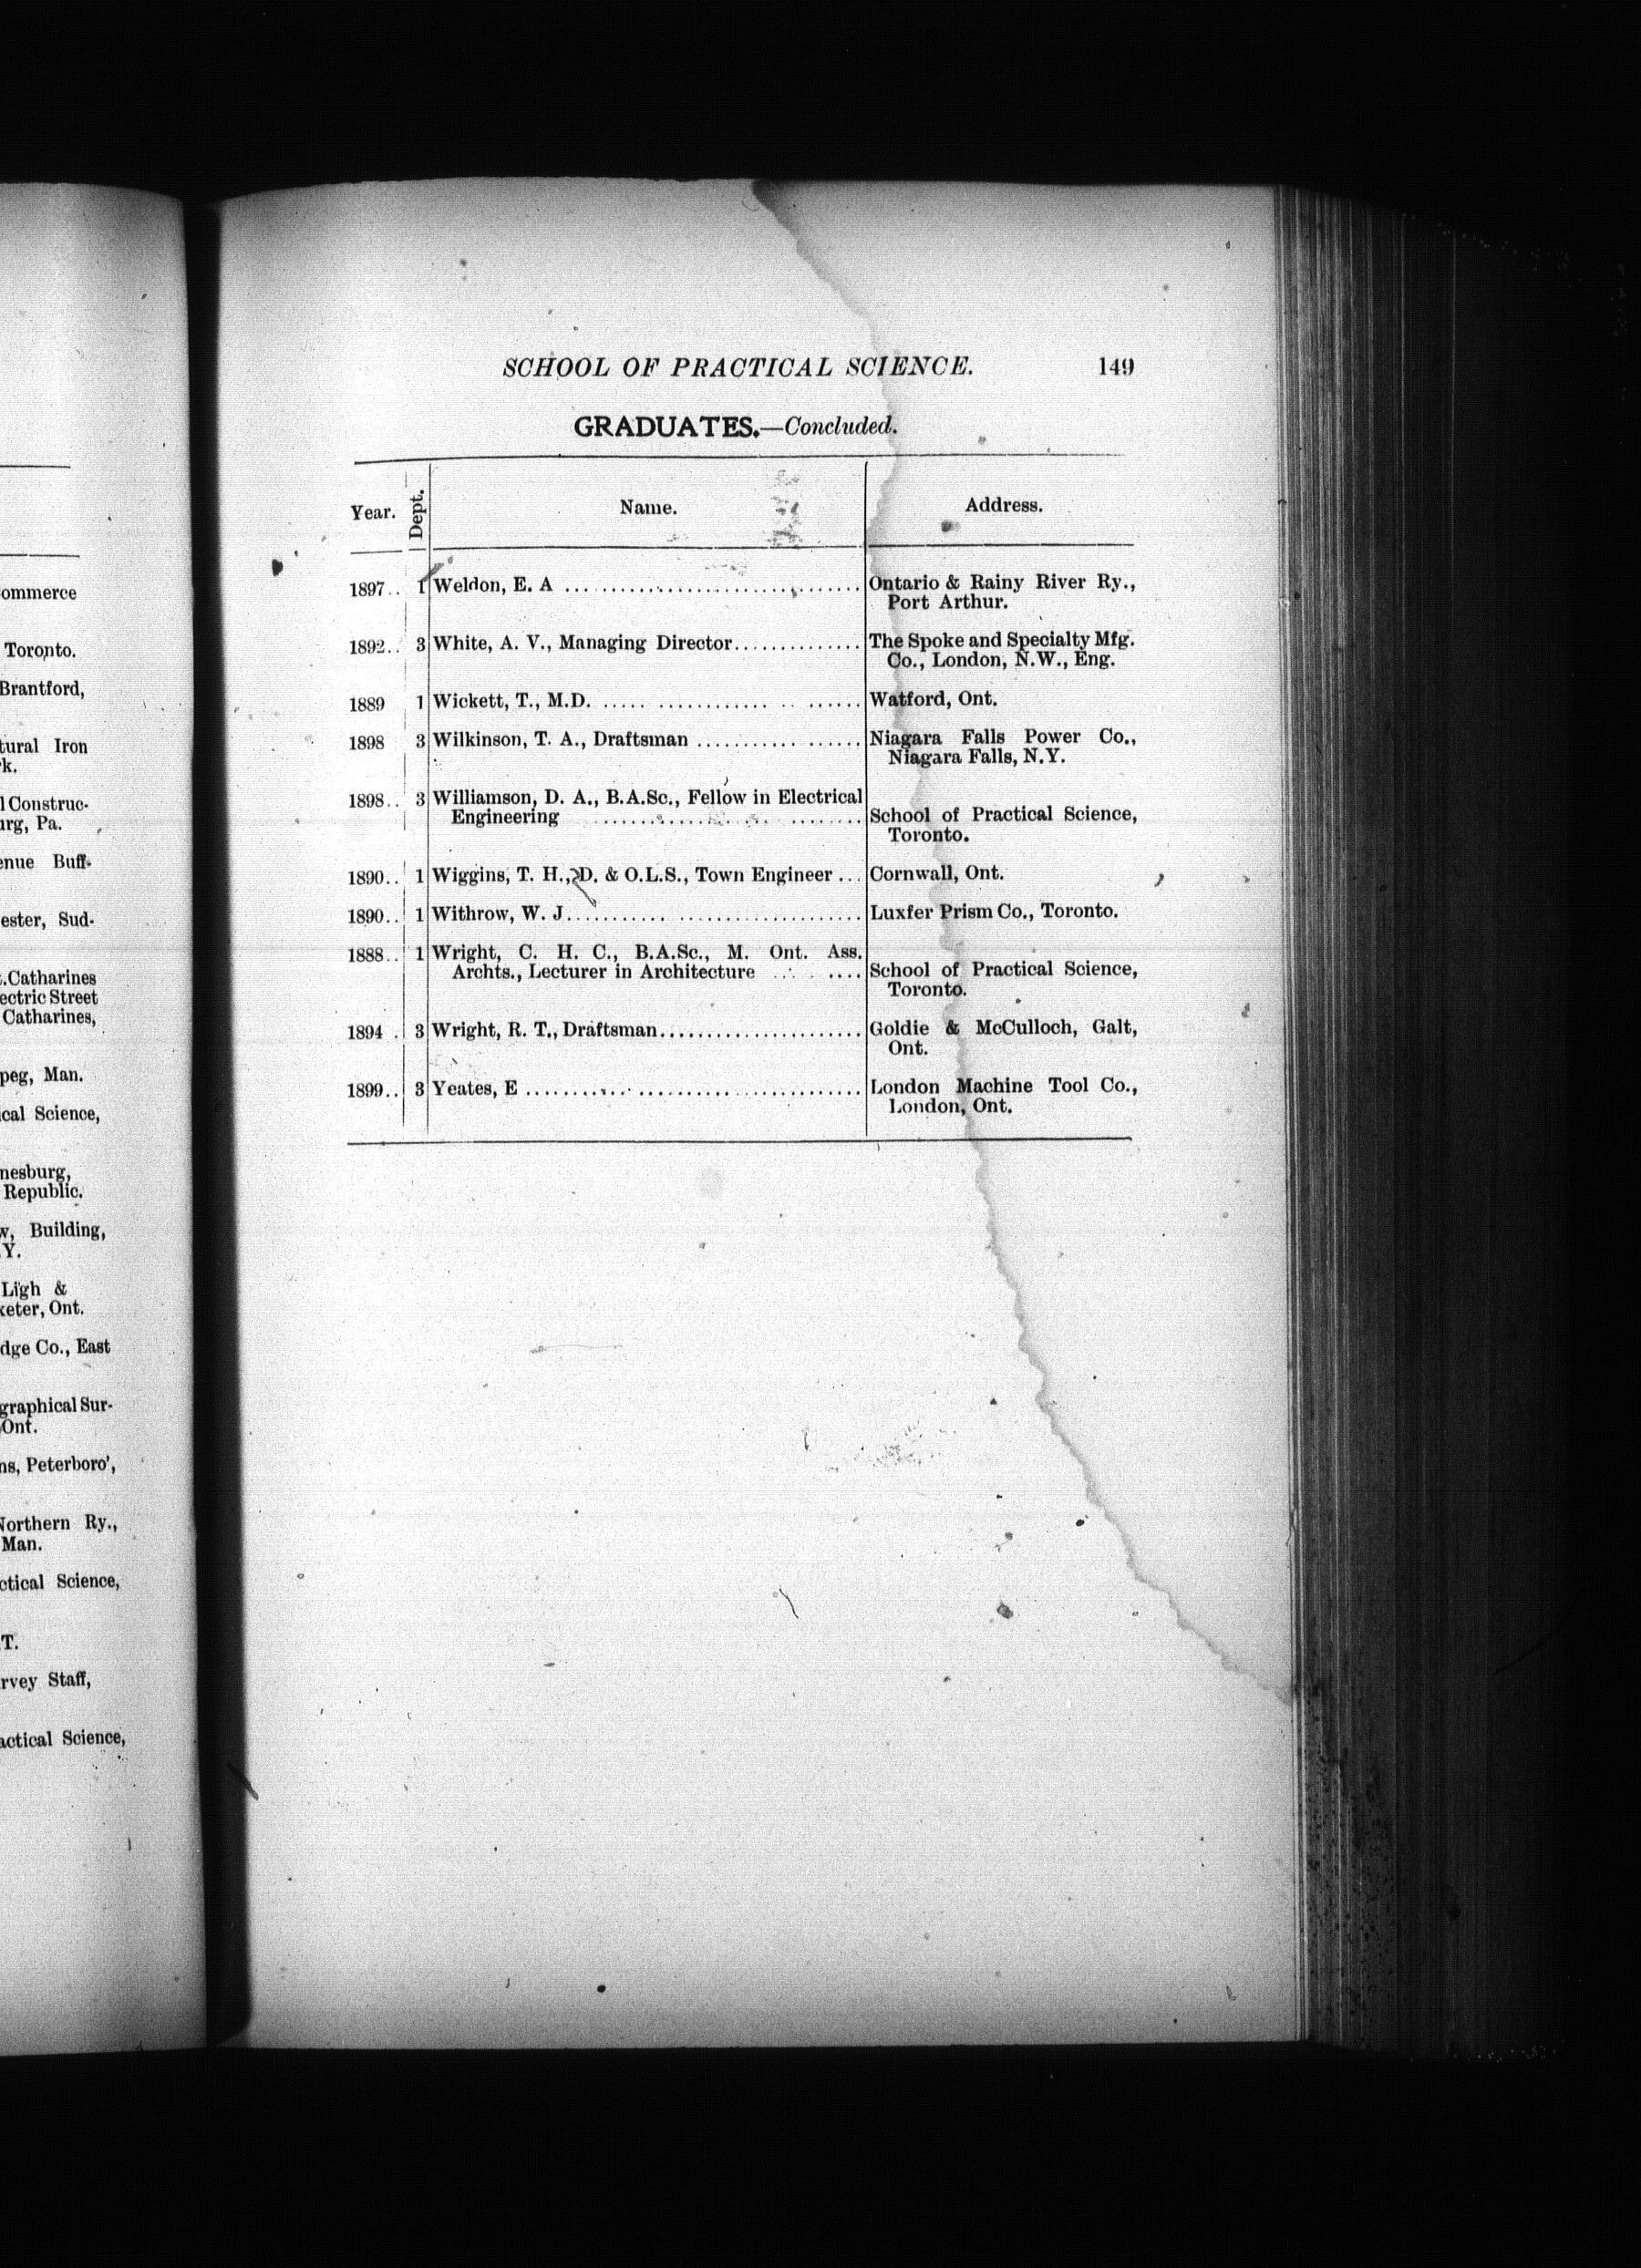 ommerce
Toronto.
Brantford,
tural Iron
k.
l Construc-
urg, Pa.
enue Buff-
ester, Sud-
t.Catharines
ectric Street
Catharines,
peg, Man.
ical Science,
nesburg,
Republic.
w, Building,
.Y.
Ligh &
xeter, Ont.
dge Co., East
graphical Sur-
Ont.
ns, Peterboro',
Northern Ry.,
Man.
ctical Science,
T.
rvey Staff,
actical Science,
SCHOOL OF PRACTICAL SCIENCE. 149
GRADUATES.—Concluded.
Year. Dept. Name. Address.
1897.. 1 Weldon, E. A .............................. Ontario & Rainy River Ry.,
Port Arthur.
1892.. 3 White, A. V., Managing Director.............. The Spoke and Specialty Mfg.
Co., London, N.W., Eng.
1889 1 Wickett, T., M.D. ..... ............ .. ...... Watford, Ont.
1898 3 Wilkinson, T. A., Draftsman ........... ...... Niagara Falls Power Co.,
Niagara Falls, N.Y.
1898.. 3 Williamson, D. A., B.A.Sc., Fellow in Electrical
Engineering .................. ........ School of Practical Science,
Toronto.
1890.. 1 Wiggins, T. H., D. & O.L.S., Town Engineer ... Cornwall, Ont.
1890.. 1 Withrow, W. J........... .................... Luxfer Prism Co., Toronto.
1888.. 1 Wright, C. H. C., B.A.Sc., M. Ont. Ass.
Archts., Lecturer in Architecture ... . .... School of Practical Science,
Toronto.
1894 . 3 Wright, R. T., Draftsman...................... Goldie & McCulloch, Galt,
Ont.
1899.. 3 Yeates, E ............ ........................ London Machine Tool Co.,
London, Ont.